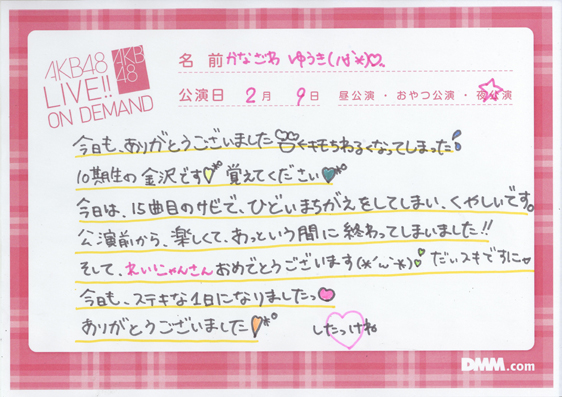 AKB48
LIVE!!
ON DEMAND
AKB
48
名 前 かなざわ ゆうき
公演日 2月 9日 昼公演・おやつ公演・夜公演
今日も、ありがとうございました ←きもちわるくなってしまった
10期生の金沢です 覚えてください
今日は、15曲目のサビで、ひどいまちがえをしてしまい、くやしいです。
公演前から、楽しくて、あっという間に終わってしまいました!!
そして、れいにゃんさんおめでとうございます(*´ω`*) だいスキですに
今日も、ステキな1日になりましたっ
ありがとうございました したっけね
DMM.com